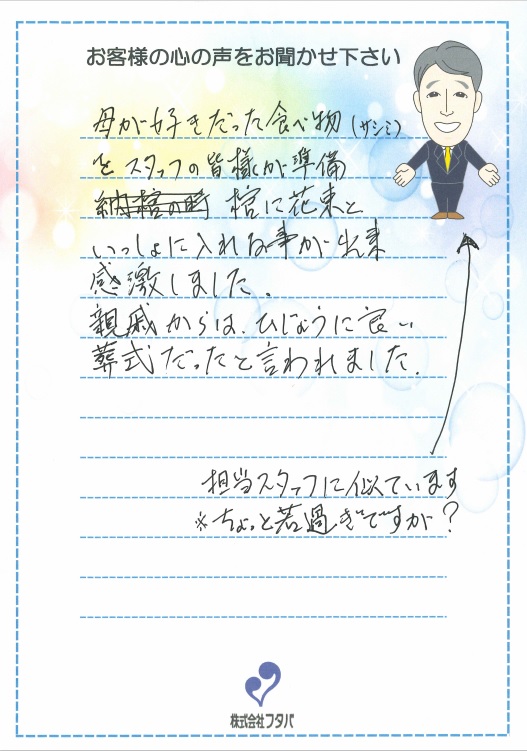 お客様の心の声をお聞かせ下さい
母が好きだった食べ物(サシミ)
をスタッフの皆様が準備
納棺の時 棺に花束と
いっしょに入れる事が出来
感激しました。
親戚からは、ひじょうに良い
葬式だったと言われました。
担当スタッフに似ています
※ちょっと若過ぎですが?
株式会社フタバ